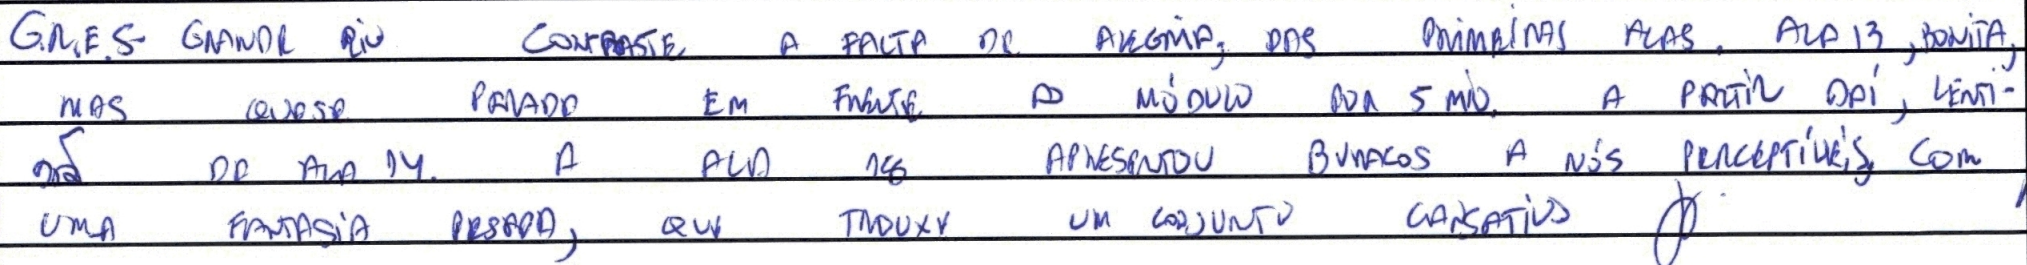 G.R.E.S. GRANDE RIO CONTRASTE A FALTA DE ALEGRIA, DAS PRIMEIRAS ALAS. ALA 13, BONITA,
MAS QUASE PARADA EM FRENTE AO MÓDULO POR 5 MIN. A PARTIR DAÍ, LENTI-
DÃO DA ALA 14. A ALA 18 APRESENTOU BURACOS A NÓS PERCEPTÍVEIS, COM
UMA FANTASIA PESADA, QUE TROUXE UM CONJUNTO CANSATIVO